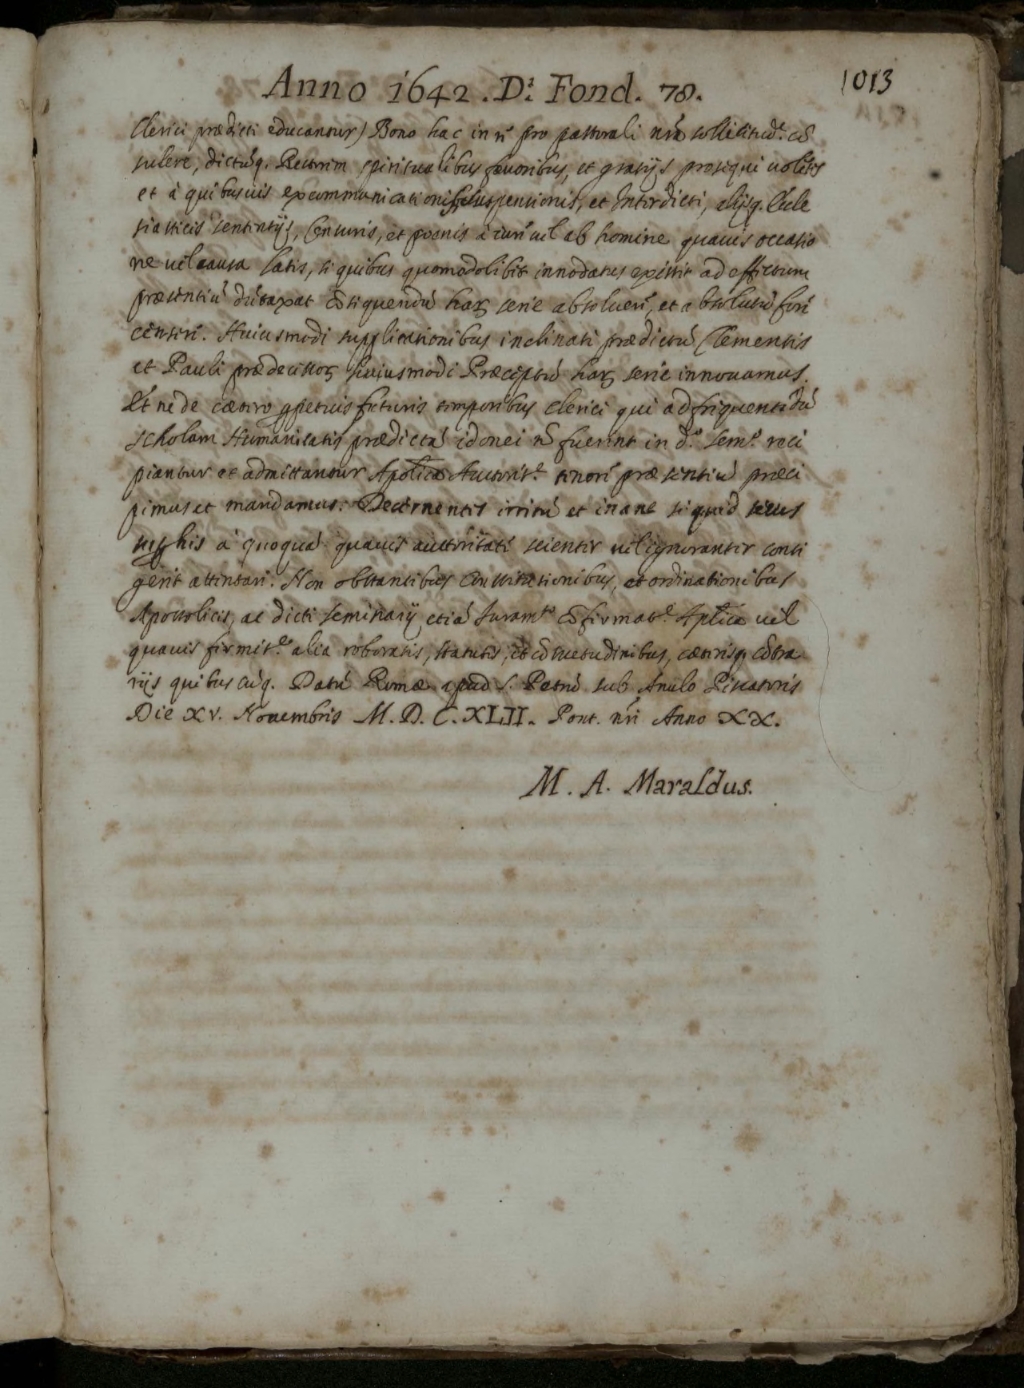 Anno 1642. Di Fond. 78.
1013
Clerici prædicti educantur) Bono hac in re pro pastorali nrã sollicitud.e cõ
sulere, dictũq. Rectorem spiritualibus favoribus, et gratijs prosequi volẽtes
et à quibusvis excommunicationis, suspensionis, et Interdicti, alijsq. Eccle
siasticis sententijs, Censuris, et poenis à iure vel ab homine quavis occasio
ne vel causa latis, si quibus quomodolibet innodatus existit ad effectum
præsentiũ dũtaxat cõsequendũ harũ serie absolventes, et absolutũ fore
censentes. Huiusmodi supplicationibus inclinati prædictũ Clementis
et Pauli prædecessorũ huiusmodi Præceptũ harũ serie innovamus.
Et ne de cætero perpetuis futuris temporibus clerici qui ad frequentãdũ
scholam Humanitatis prædictã idonei nõ fuerint in d.o Sem.o reci
piantur et admittantur Aplica Auctorit.e tenore præsentiũ præci
pimus et mandamus. Decernentes irritũ et inane si quid secus
super his à quoquã quavis auctoritate scienter vel ignoranter conti
gerit attentari. Non obstantibus Constitutionibus, et ordinationibus
Apostolicis, ac dicti seminarij etiã Juram.to cõfirmat.e Aplica vel
quavis firmit.e alia roboratis, statutis, et cõsuetudinibus, cæterisq. cõtra
rijs quibuscũq. Datũ Romæ apud S. Petrũ sub Anulo Piscatoris
Die XV. Novembris M.D.C.XLII. Pont. nri Anno XX.
M. A. Maraldus.